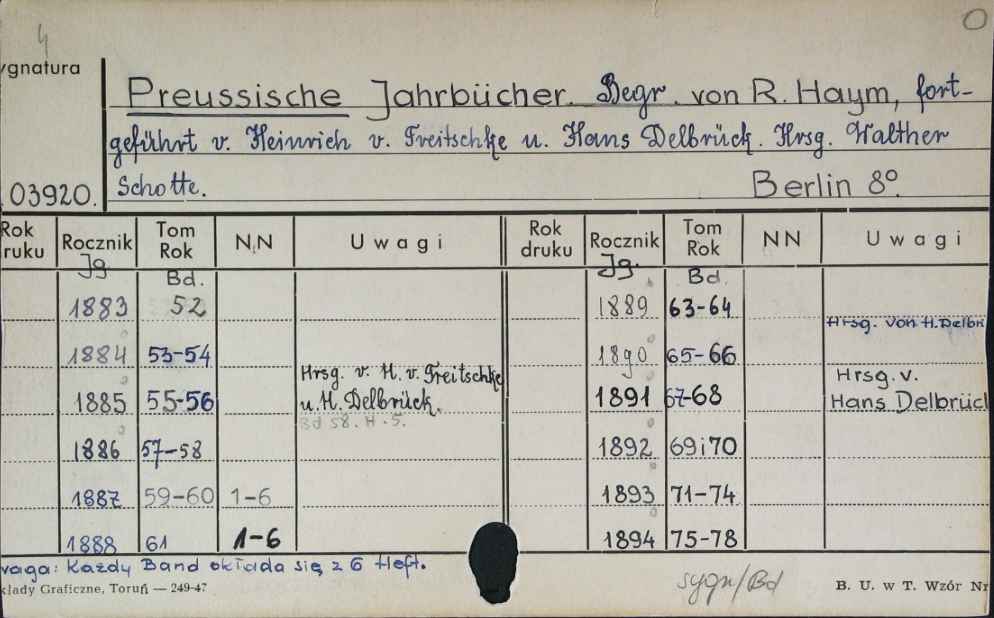 4
ygnatura
Preussische Jahrbücher. Begr. von R. Haym, fort-
geführt v. Heinrich v. Treitschke u. Hans Delbrück. Hrsg. Walther
03920. Schotte. Berlin 8º.
Rok ruku Rocznik Tom Rok N.N Uwagi Rok druku Rocznik Tom Rok NN Uwagi
Jg Bd. Jg. Bd.
1883 52 1889 63-64
Hrsg. von H. Delbr
1884 53-54 1890 65-66
Hrsg. v. H. v. Treitschke Hrsg. v.
1885 55-56 u. H. Delbrück. 1891 67-68 Hans Delbrücl
Bd 58. H. 5.
1886 57-58 1892 69i70
1887 59-60 1-6 1893 71-74
1888 61 1-6 1894 75-78
waga: Każdy Band okłada się z 6 Heft.
kłady Graficzne, Toruń — 249-47 sygn/Bd B. U. w T. Wzór Nr